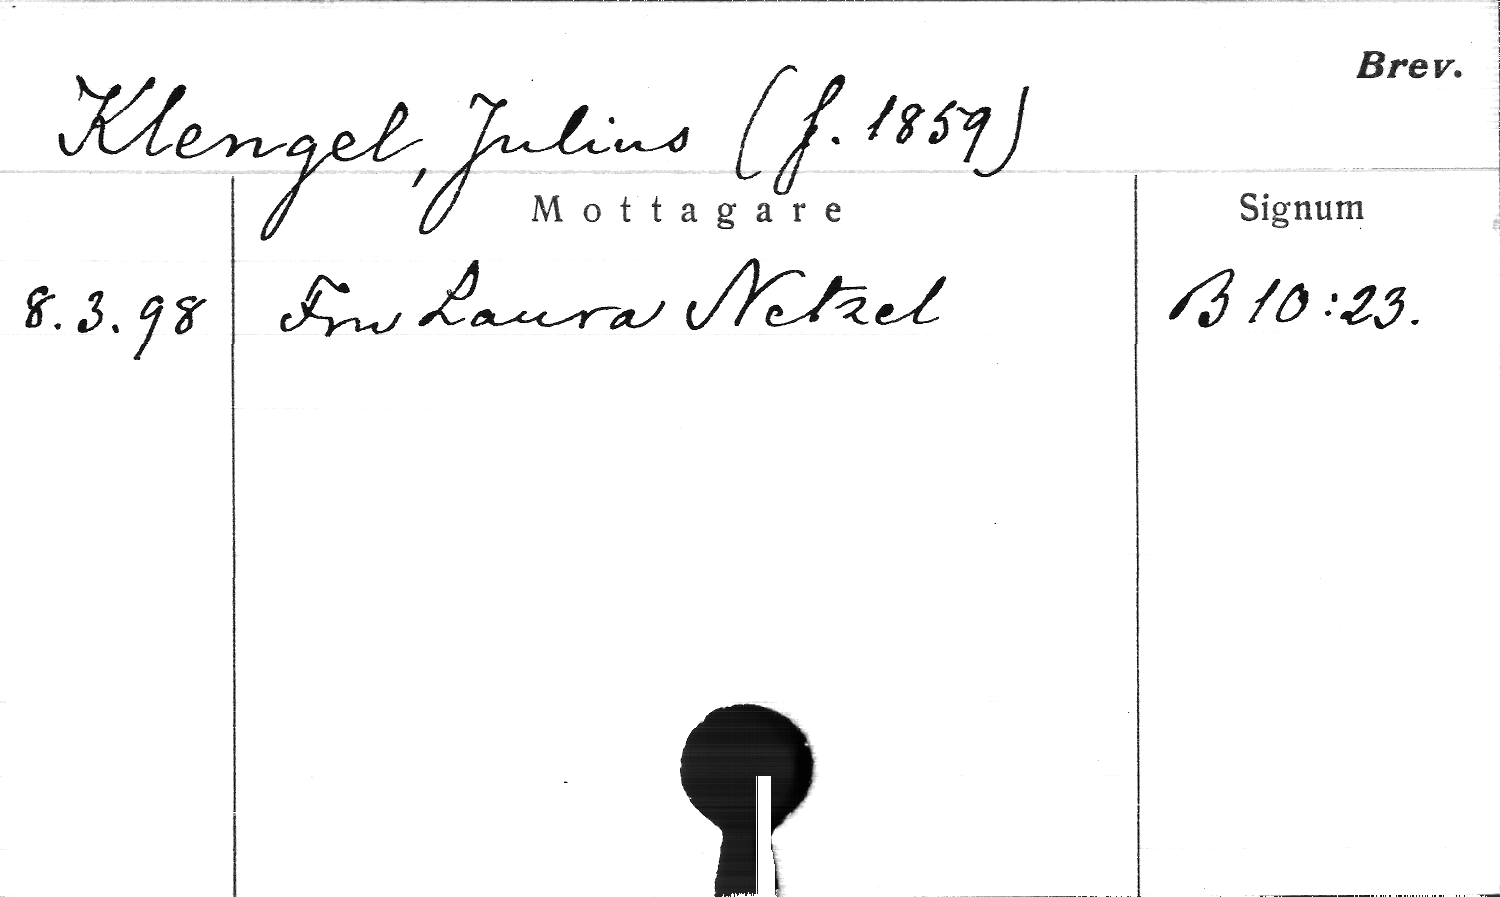 Brev.
Klengel, Julius (f. 1859)
Mottagare Signum
8.3.98 Fru Laura Netzel B 10:23.